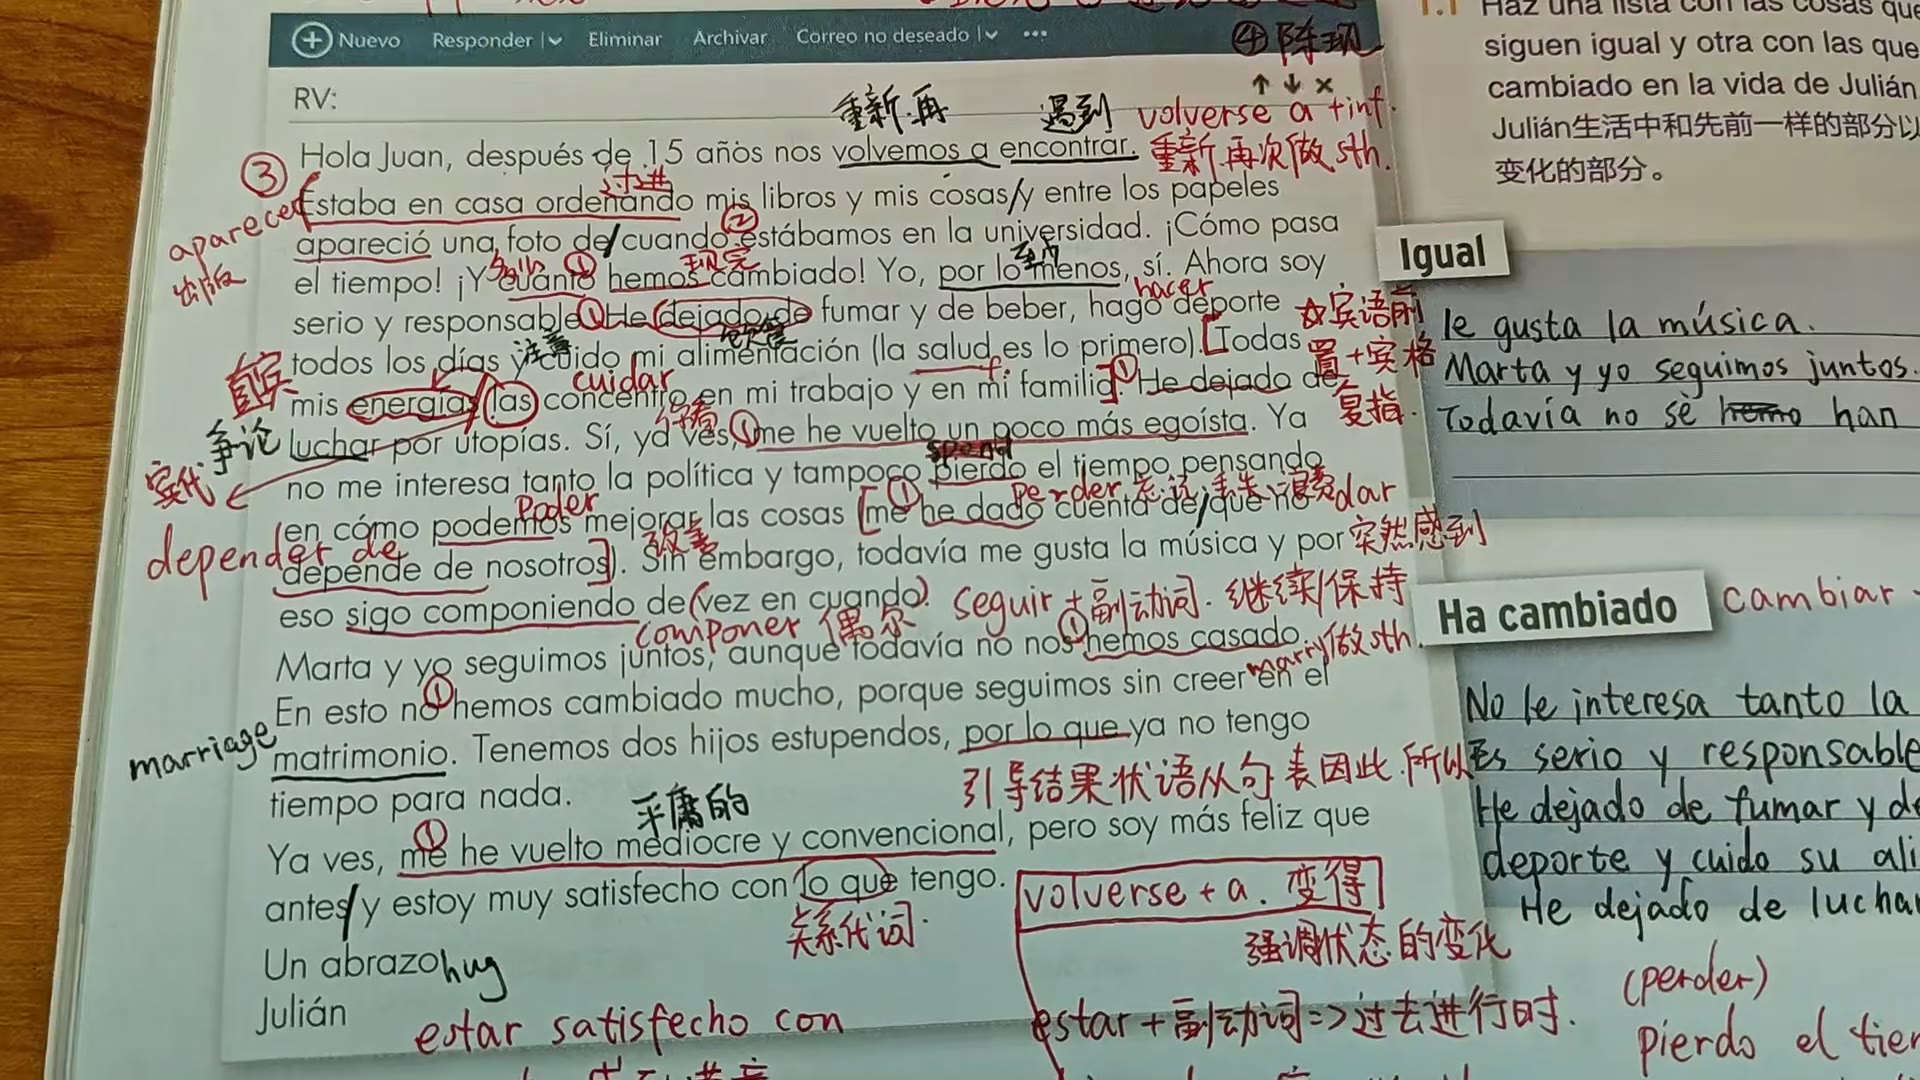 Nuevo Responder Eliminar Archivar Correo no deseado ...
④陈现
RV:
重新.再 遇到 volverse a +inf.
Hola Juan, después de 15 años nos volvemos a encontrar. 重新再次做sth.
③ 过进
Estaba en casa ordenando mis libros y mis cosas/y entre los papeles
aparecer
出版
②
apareció una foto de/cuando estábamos en la universidad. ¡Cómo pasa
多少 ① 现完 至少
el tiempo! ¡Y cuánto hemos cambiado! Yo, por lo menos, sí. Ahora soy
hacer
serio y responsable. ① He dejado de fumar y de beber, hago deporte
注意 饮食
todos los días y cuido mi alimentación (la salud es lo primero). [Todas
☆宾语前
置+宾格
复指.
直宾 cuidar f. ①
mis energías las concentro en mi trabajo y en mi familia]. He dejado de
争论 你看 ①
luchar por utopías. Sí, ya ves, me he vuelto un poco más egoísta. Ya
宾代 spend
no me interesa tanto la política y tampoco pierdo el tiempo pensando
poder ① perder 忘记,丢失,浪费 dar
(en cómo podemos mejorar las cosas [me he dado cuenta de/que no
depender de 改善 突然感到
depende de nosotros]). Sin embargo, todavía me gusta la música y por
eso sigo componiendo de (vez en cuando). seguir +副动词. 继续/保持
componer 偶尔 ① 做sth.
Marta y yo seguimos juntos, aunque todavía no nos hemos casado.
① marry
En esto no hemos cambiado mucho, porque seguimos sin creer en el
marriage
matrimonio. Tenemos dos hijos estupendos, por lo que ya no tengo
引导结果状语从句 表因此.所以
tiempo para nada.
① 平庸的
Ya ves, me he vuelto mediocre y convencional, pero soy más feliz que
antes/y estoy muy satisfecho con lo que tengo.
关系代词.
volverse + a. 变得
强调状态的变化
Un abrazo hug
Julián
estar satisfecho con
estar +副动词=>过去进行时.
1.1 Haz una lista con las cosas que
siguen igual y otra con las que
cambiado en la vida de Julián
Julián生活中和先前一样的部分以
变化的部分。
Igual
le gusta la música.
Marta y yo seguimos juntos.
Todavía no se han
Ha cambiado cambiar
No le interesa tanto la
Es serio y responsable
He dejado de fumar y de
deporte y cuido su ali
He dejado de lucha
(perder)
pierdo el tie